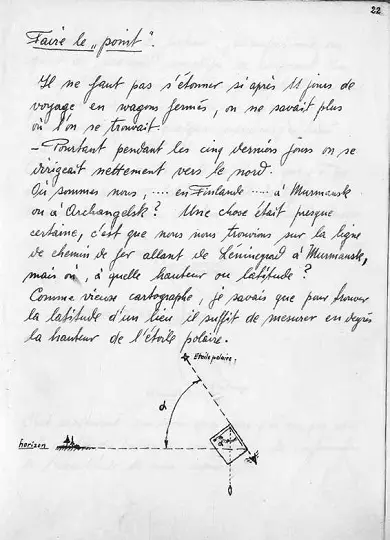 22
Faire le „point".
Il ne faut pas s'étonner si après 18 jours de
voyage en wagons fermés, on ne savait plus
où l'on se trouvait.
- Pourtant pendant les cinq derniers jours on se
dirigeait nettement vers le nord.
Où sommes nous, .... en Finlande ..... à Murmansk
ou à Archangelsk? Une chose était presque
certaine, c'est que nous nous trouvions sur la ligne
de chemin de fer allant de Léningrad à Murmansk,
mais où, à quelle hauteur ou latitude?
Comme vieux cartographe, je savais que pour trouver
la latitude d'un lieu il suffit de mesurer en degrés
la hauteur de l'étoile polaire.
Etoile polaire.
α
horizon